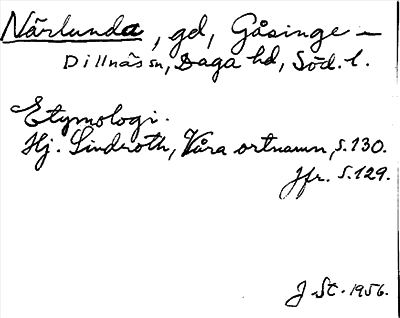 Närlunda, gd, Gåsinge –
Dillnäs sn, Daga hd, Söd. l.
Etymologi.
Hj. Lindroth, Våra ortnamn, s. 130.
Jfr. s. 129.
J St. 1956.